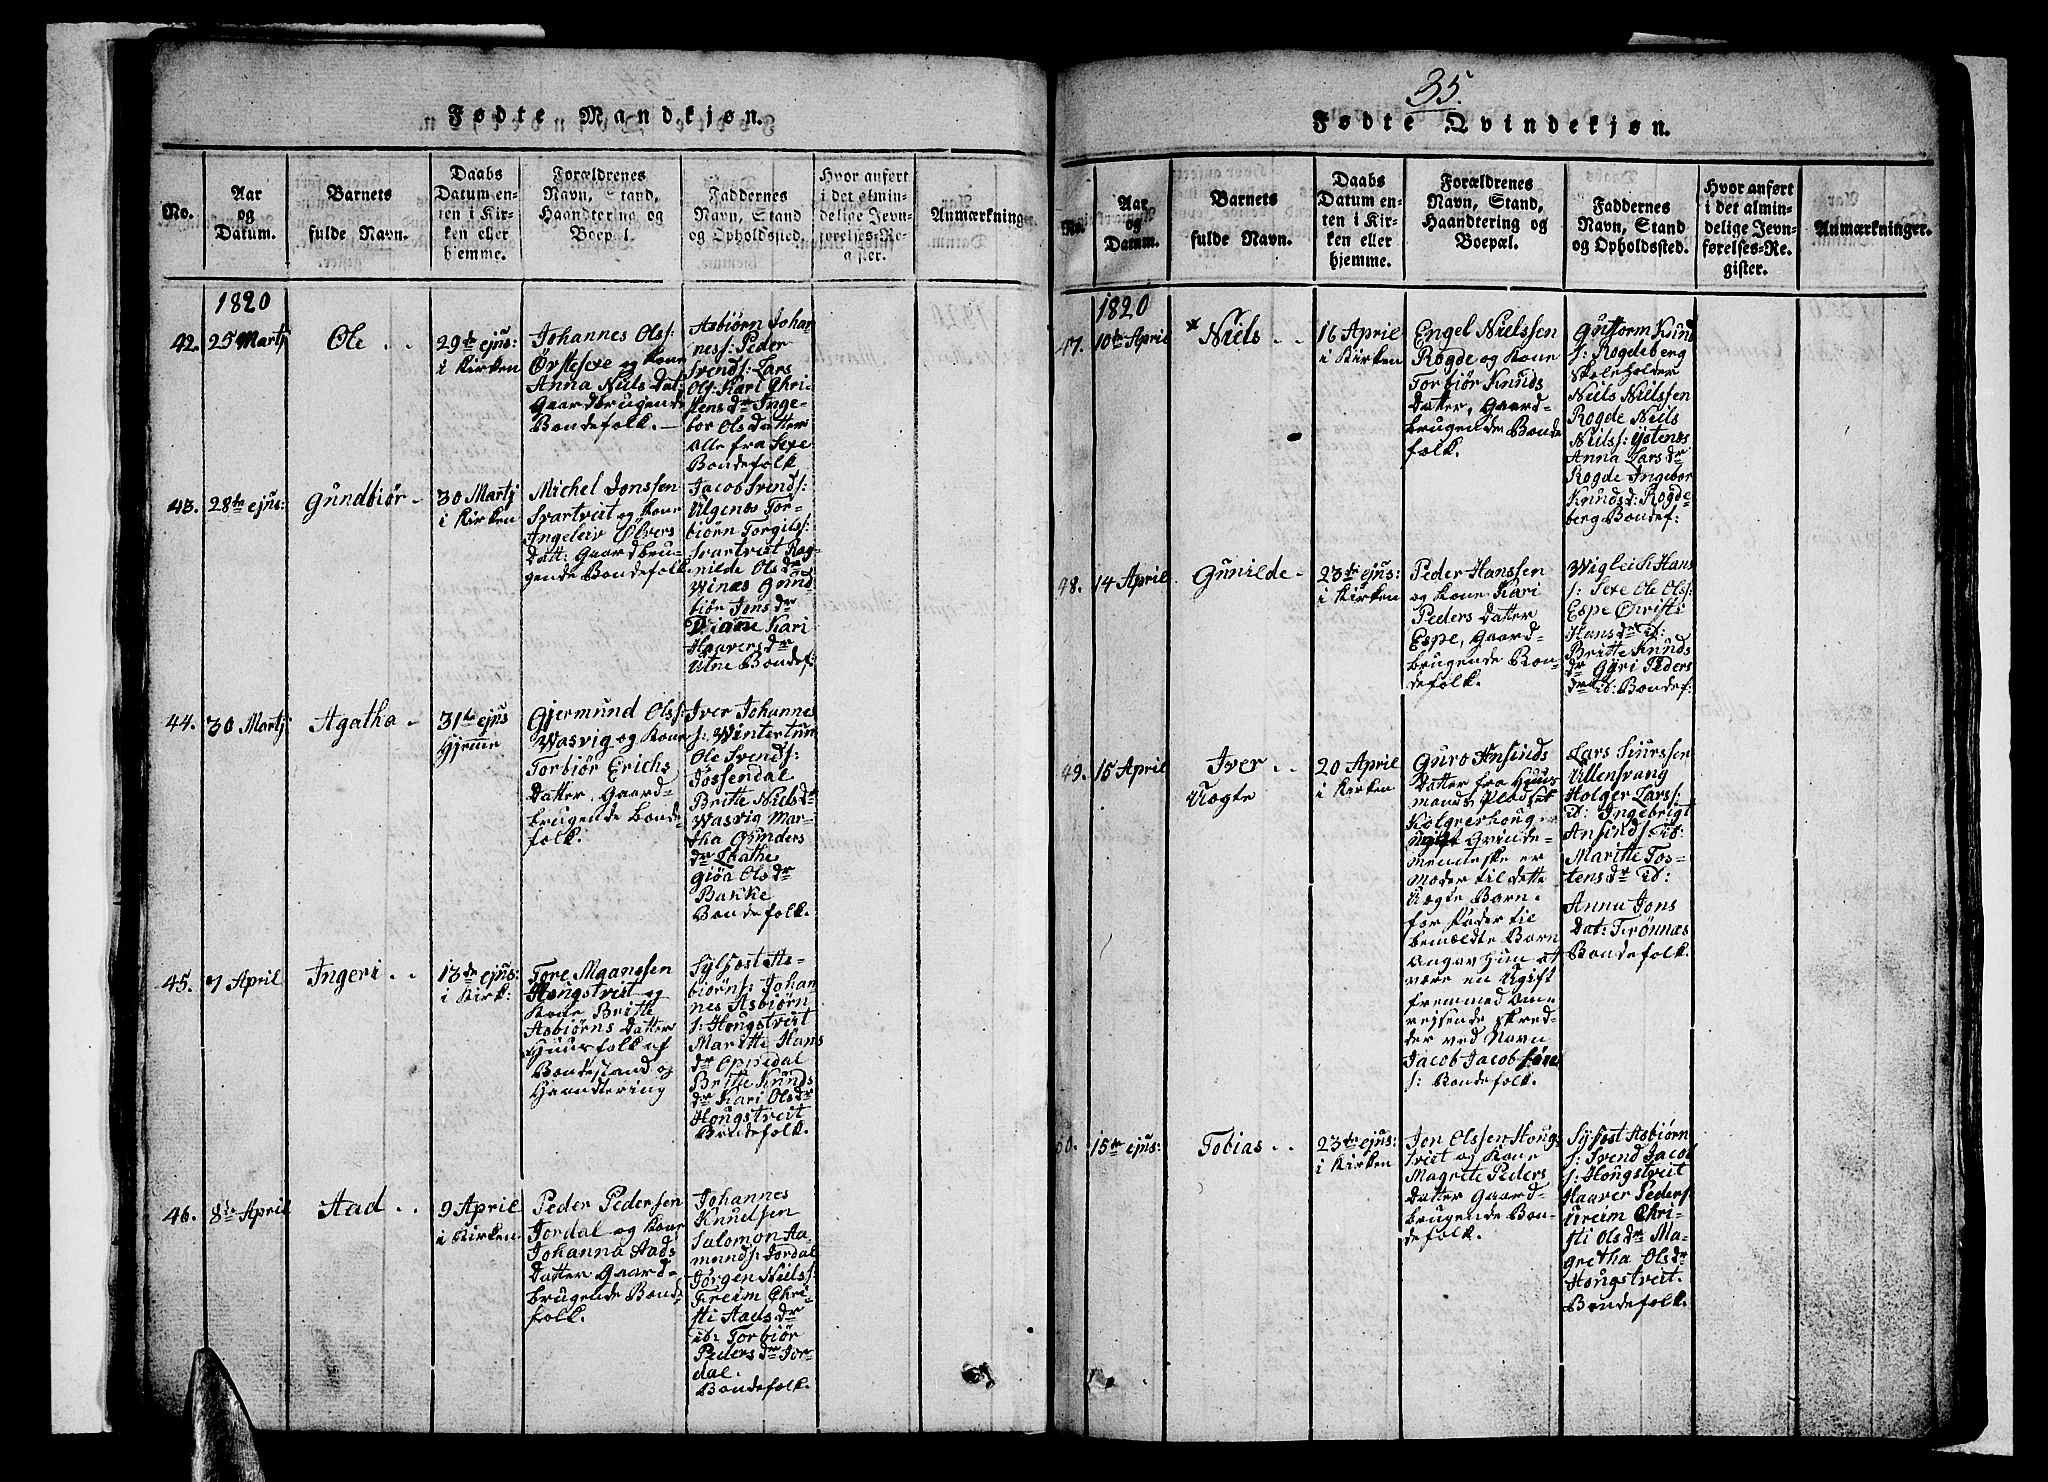 35.
Fødte Mandkjøn.
No.
Aar
og
Datum.
Barnets
fulde Navn.
Daabs
Datum en-
ten i Kir-
ken eller
hjemme.
Forældrenes
Navn, Stand,
Haandtering og
Boepæl.
Faddernes
Navn, Stand
og Opholdssted.
Hvor anført
i det almin-
delige Jevn-
førelses-Re-
gister.
Anmærkninger.
1820
42.
25 Martj
Ole
29de ejus:
i Kirken
Johannes Ols:
Anna Niels Dat:
Gaardbrugende
Bondefolk.
Asbiörn Johan
ness: Peder
Svends: Lars
Ols: Karl Chri-
stens dr Inge-
bor Ols datter
alle fra Sexe
Bondefolk
43.
28de ejus:
Gundbiör
30 Martj
i Kirken
Michel Jonssen
Svartveit og Kone
Ingeleiv Ölvers
Datt: Gaardbru-
gende Bondefolk
Jacob Svends:
Ulgenæs Tor-
biörn Torgils:
Svartveit Rag-
nilde Ols dr
Winæs Gund
biör Jons dr
Kari
Haavers dr
Utne Bondef:
44.
30 Martj
Agatha
31te ejus
Hjemme
Gjermund Ols:
Wasvig og Kone
Torbiör Erichs
Datter, Gaard-
brugende Bonde
folk.
Iver Johannes
s: Wintertun
Ole Svends:
Jössendal
Britte Niels dr
Wasvig Mar-
tha Gunders
dr Lothe
Giöa Ols dr
Bakke
Bondefolk.
45.
7 April
Ingeri
13de ejus:
i Kirk:
Tore Maanssen
Hougstveit og
Kone Britte
Asbiörns Datter
Huusfolk af
Bondestand og
Haandtering
Sylfest As-
biörns: Johan
nes Asbiörn
s: Hougstveit
Maritte Hans
dr Oppedal
Britte Knuds
dr Kari Ols dr
Hougstveit
Bondefolk.
46.
8de April
Aad
9 April
i Kirken
Peder Pedersen
Jordal og Kone
Johanna Aads
Datter Gaard-
brugende Bonde
folk.
Johannes
Knudsen
Salomon Aa-
munds: Jordal
Jörgen Niels:
Freim Chri-
sti Aads dr
ib: Torbiör
Peders dr Jor-
dal.
Bondefolk.
Fødte Qvindekjøn.
No.
Aar
og
Datum.
Barnets
fulde Navn.
Daabs
Datum en-
ten i Kir-
ken eller
hjemme.
Forældrenes
Navn, Stand,
Haandtering og
Boepæl.
Faddernes
Navn, Stand
og Opholdssted.
Hvor anført
i det almin-
delige Jevn-
førelses-Re-
gister.
Anmærkninger.
1820
47.
10de April
* Niels
16 April
i Kirken
Engel Nielssen
Rogde og Kone
Torbiör Knuds
Datter, Gaard-
brugende Bonde
folk.
Guttorm Knud
s: Rogdeberg
Skoleholder
Niels Nielssen
Rogde Niels
Niels: Ystenæs
Anna Lars dr
Rogde Ingebor
Knudsd: Rogde-
berg Bondef:
48.
14 April
Gunilde
23de ejus:
i Kirken
Peder Hanssen
og Kone Kari
Peders Datter
Espe, Gaard-
brugende Bon-
defolk.
Wigleich Hans
s: Sexe Ole Ols:
Espe Christi
Hans dr ib:
Britte Knuds
dr Guri Peders
dr ib: Bondef:
49.
15 April
Iver
Uægte
20 April
i Kirken
Guro Amunds
Datter fra Huus
mands Pladset
ugift Qvinde-
menneske er
Moder til dette
Uægte Barn.
for Fader til
bemældte Barn
Angav hun at
være en Ugift
fremmed om-
rejsende Skred-
der ved Navn
Jacob Jacob
s: Bondefolk.
Lars Siurssen
Ullensvang
Holger Lars:
ib: Ingebrigt
Amunds: ib:
Maritte Tos-
tens dr ib:
Anna Jons
Dat: Trönnæs
Bondefolk.
50.
15de ejus:
Tobias
23de ejus:
i Kirken
Jon Olssen Houg
tveit og Kone
Magrete Peders
Datter Gaard-
brugende Bon-
defolk.
Sylfest Asbiörn
s: Svend Jacob
s: Hougstveit
Haaver Peders:
Ureim Chri-
sti Ols dr Ma-
gretha Ols dr
Hougstveit.
Bondefolk.